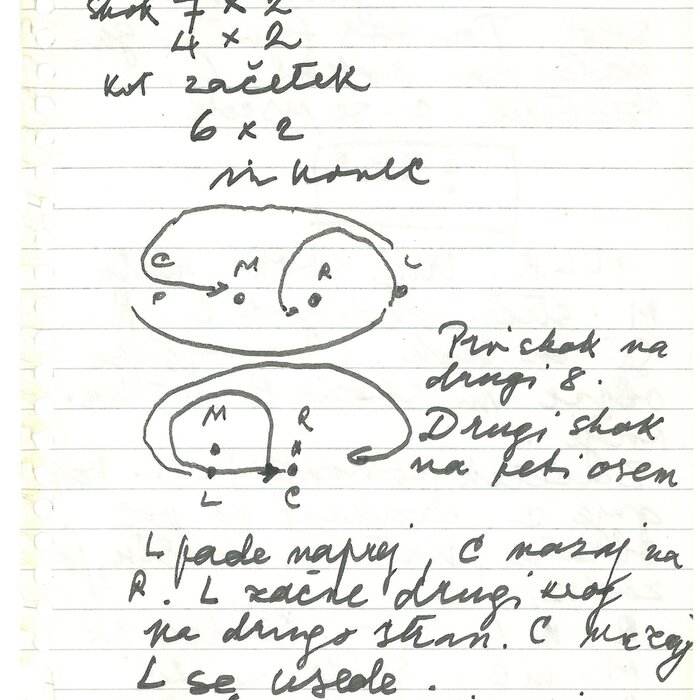 skok 7 x 2
4 x 2
kot začetek
6 x 2
in konec
C M R L
P
Prvi skok na
drugi 8.
M R
Drugi skok
na peti osem
L C
L pade naprej, C nazaj na
R. L začne drugi krog
na drugo stran. C nazaj
L se usede.